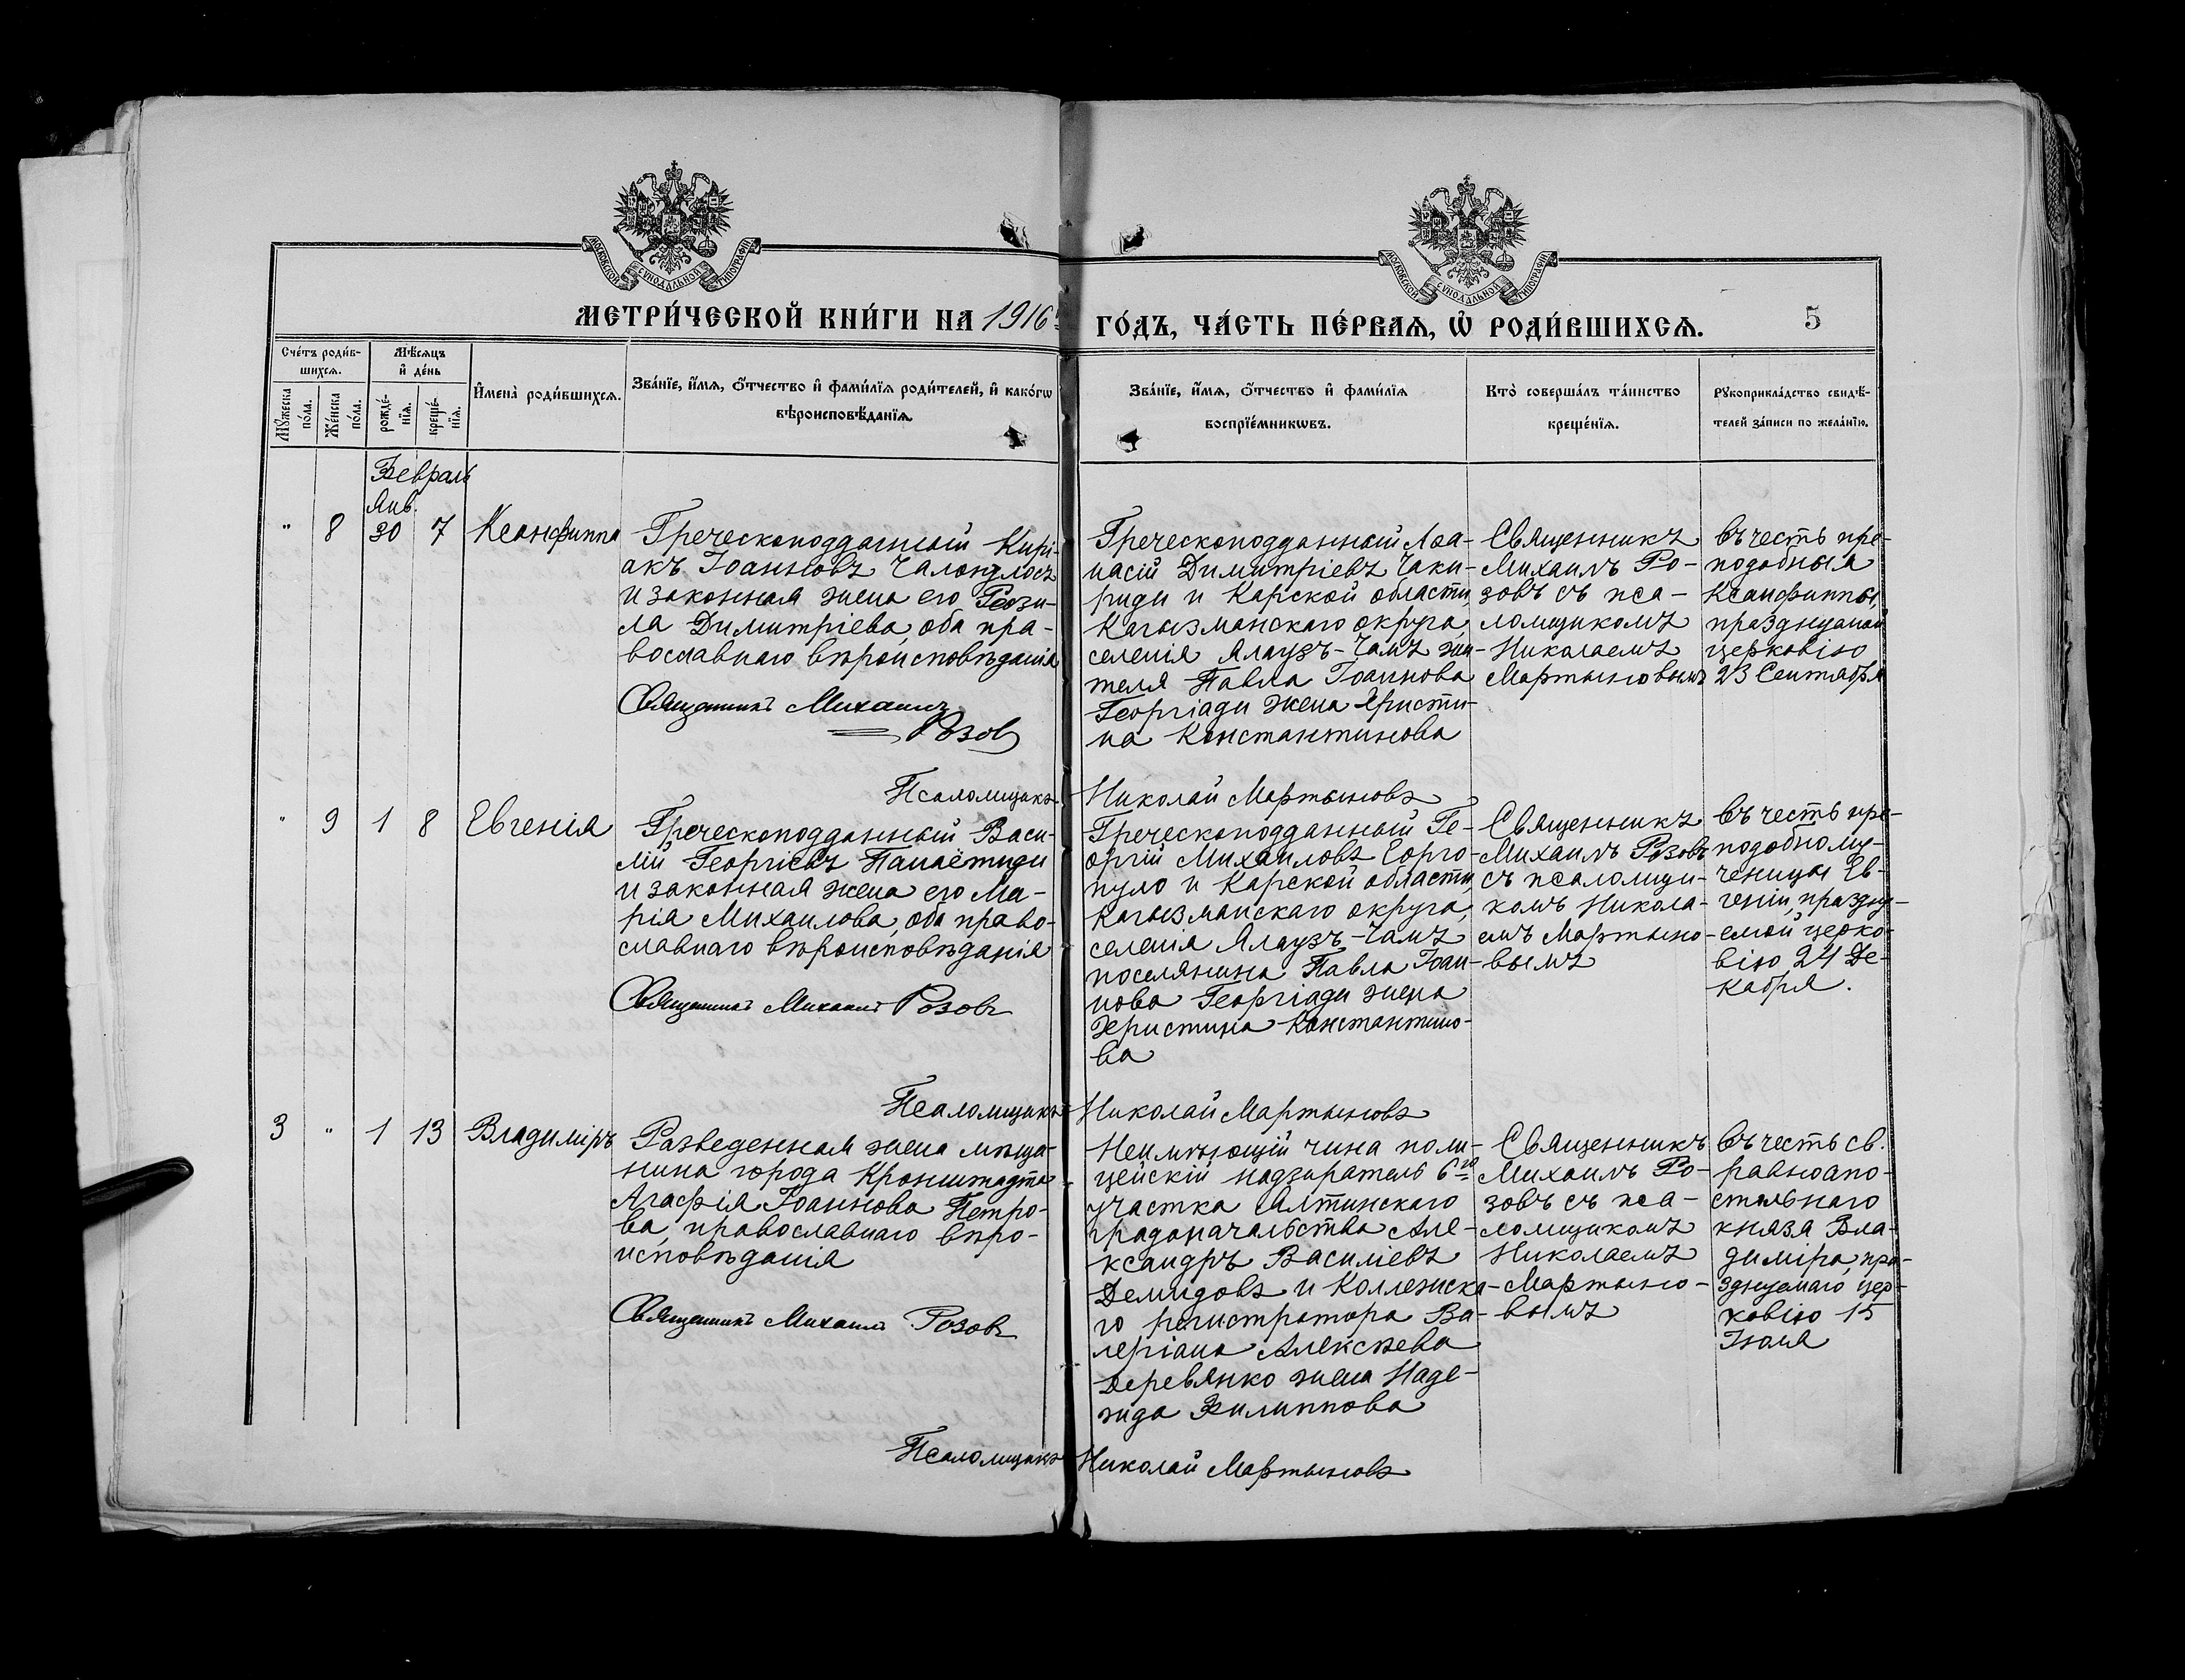 МОСКОВСКОЙ СѴНОДАЛЬНОЙ ТИПОГРАФІИ
МОСКОВСКОЙ СѴНОДАЛЬНОЙ ТИПОГРАФІИ
МЕТРИ́ЧЕСКОЙ КНИ́ГИ НА 1916й
ГО́ДЪ, ЧА́СТЬ ПЕ́РВАѦ, Ѡ҆ РОДИ́ВШИХСѦ.
5
Сче́тъ роди́в-
шихсѧ.
Мѣ́сѧцъ
и҆ де́нь
Мꙋ́жеска
по́ла.
Же́нска
по́ла.
рожде́-
нїѧ.
креще́-
нїѧ.
И҆мена̀ роди́вшихсѧ.
Зва́нїе, и҆́мѧ, ѻ҆́тчество и҆ фами́лїѧ роди́телей, и҆ како́гѡ
вѣроисповѣ́данїѧ.
Зва́нїе, и҆́мѧ, ѻ҆́тчество и҆ фами́лїѧ
воспрїе́мникѡвъ.
Кто̀ соверша́лъ та́инство
креще́нїѧ.
Рꙋкоприкла́дство свидѣ́-
телей за́писи по жела́нїю.
Февраль
Янв.
" 8 30 7 Ксанфиппа
Греческоподданный Кирі-
акъ Іоанновъ Чалондлосъ
и законная жена его Геози-
ла Димитріева, оба пра-
вославнаго вѣроисповѣданія
Священникъ Михаилъ
Розов
Греческоподданный Аѳа-
насій Димитріевъ Чаки-
риди и Карской области,
Кагызманскаго округа,
селенія Ялаузъ-Чамъ жи-
теля Павла Іоаннова
Георгіади жена Христи-
на Константинова
Священникъ
Михаилъ Ро-
зовъ съ пса-
ломщикомъ
Николаемъ
Мартыновымъ
въ честь пре-
подобныя
Ксанфиппы,
празднуемой
церковію
23 Сентября
Псаломщикъ Николай Мартыновъ
" 9 1 8 Евгенія
Греческоподданный Васи-
лій Георгіевъ Панаётиди
и законная жена его Ма-
рія Михаилова, оба право-
славнаго вѣроисповѣданія
Священникъ Михаилъ Розовъ
Греческоподданный Ге-
оргій Михаиловъ Горго-
пуло и Карской области,
Кагызманскаго округа,
селенія Ялаузъ-Чамъ
поселянина Павла Іоан-
нова Георгіади жена
Христина Константино-
ва
Священникъ
Михаилъ Розовъ
съ псаломщи-
комъ Никола-
емъ Мартыно-
вымъ
въ честь пре-
подобному-
ченицы Ев-
геніи, праздну-
емой церко-
вію 24 Де-
кабря.
Псаломщикъ Николай Мартыновъ
3 " 1 13 Владиміръ
Разведенная жена мѣща-
нина города Кронштадта
Агафія Іоаннова Петро-
ва, православнаго вѣро-
исповѣданія
Священникъ Михаилъ Розовъ
Неимѣющій чина поли-
цейскій надзиратель 6го
участка Ялтинскаго
градоначальства Але-
ксандръ Василіевъ
Демидовъ и Коллежска-
го регистратора Ва-
леріана Алексѣева
Деревянко жена Наде-
жда Филиппова
Священникъ
Михаилъ Ро-
зовъ съ пса-
ломщикомъ
Николаемъ
Мартыно-
вымъ
въ честь св.
равноапо-
стольнаго
князя Вла-
диміра, пра-
зднуемаго цер-
ковію 15
Іюля
Псаломщикъ Николай Мартыновъ